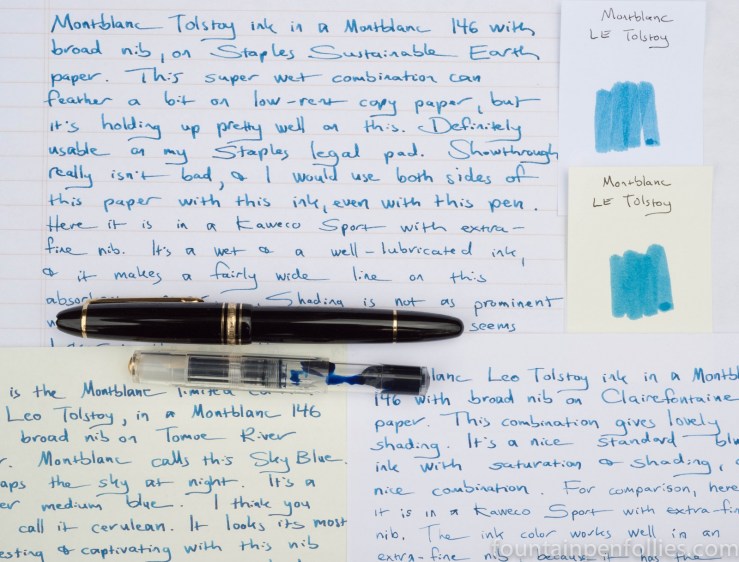 Montblanc Tolstoy ink in a Montblanc 146 with
broad nib, on Staples Sustainable Earth
paper. This super wet combination can
feather a bit on low-rent copy paper, but
it's holding up pretty well on this. Definitely
usable on my Staples legal pad. Showthrough
really isn't bad, & I would use both sides of
this paper with this ink, even with this pen.
Here it is in a Kaweco Sport with extra-
fine nib. It's a wet & a well-lubricated ink,
& it makes a fairly wide line on this
Shading is not as prominent
seems
Montblanc
LE Tolstoy
Montblanc
LE Tolstoy
is the Montblanc
Leo Tolstoy, in a Montblanc 146
broad nib on Tomoe River
Montblanc calls this Sky Blue.
the sky at night. It's a
medium blue. I think you
call it cerulean. It looks its most
& captivating with this nib
Leo Tolstoy ink in a
146 with broad nib on Clairefontaine
paper. This combination gives lovely
shading. It's a nice standard
ink with saturation & shading,
nice combination. For comparison, here
it is in a Kaweco Sport with
nib. The ink color works well in an
extra-fine nib, because it has the
fountainpenfollies.com